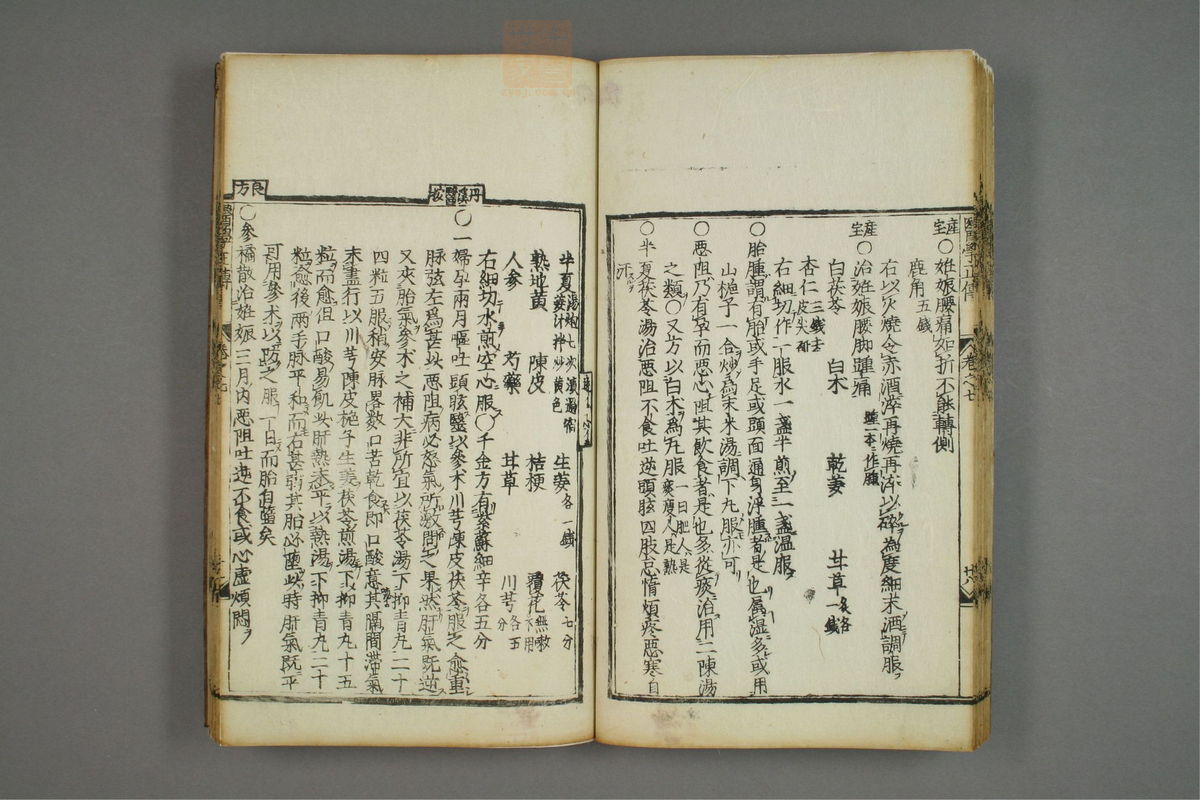 醫學正傳
卷之七
産宝
○姙娠腰痛如折不能轉側
鹿角五錢
右以火燒令赤酒淬再燒再淬以碎為度細末酒調服
産宝
○治姙娠腰脚腫痛
白茯苓 白木 乾姜 甘草
各一錢
杏仁三錢去皮尖
右細切作一服水一盞半煎至一盞溫服
○胎腫謂有胎或手足或頭面通身浮腫者是也属湿多或用
山梔子一合炒為末米湯調下丸服亦可
○悪阻乃有孕而悪心阻其飲食者是也多從痰治用二陳湯
之類○又方以白木為丸服一日肥人是痰瘦人是熱
○半夏茯苓湯治悪阻不食吐逆頭眩四肢怠惰煩疼悪寒自
汗
半夏湯炮七次
姜汁拌炒黄色
生姜各一錢 茯苓七分
熟地黄 陳皮 桔梗
人参 芍藥 甘草 川芎各五分
右細切水煎空心服○千金方有紫蘇細辛各五分
丹溪醫按
○一婦孕兩月嘔吐頭眩醫以參朮川芎陳皮茯苓服之愈重
脉弦左為甚以悪阻病必怒氣所激問之果然肝氣既逆
又夾胎氣參朮之補大非所宜以茯苓湯下抑青丸二十
四粒五服稍安脉畧数口苦乾食即口酸意其膈間滞氣
末盡行以川芎陳皮梔子生姜茯苓煎湯下抑青丸十五
粒而愈但口酸易飢此肝熱未平以熱湯下抑青丸二十
粒愈後兩手脉平和而右甚弱其胎必墮此時肝氣既平
可用參朮以防之服一月而胎自固矣
良方
○參橘散治姙娠三月内悪阻吐逆不食或心虚煩悶